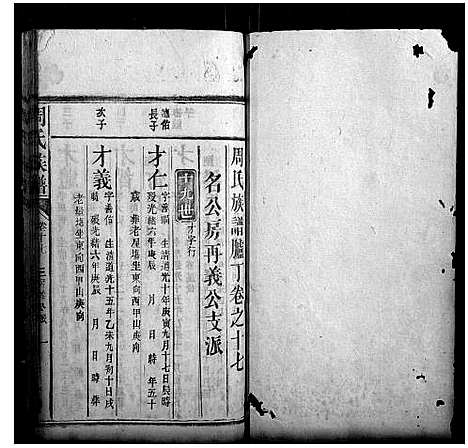 周氏族譜臚丁卷之十七
名公房再義公支派
十九世 才字行
長子
才仁 字善 生清道光十年庚寅九月十七日長時
歿光緒六年庚辰 月 日時年五十
歲葬老屋塆坐東向西甲山庚向
次子
才義 字善 生清道光十五年乙未九月初十日戌
時 歿光緒六年庚辰 月 日時葬
老屋塆坐東向西甲山庚向
周氏族譜